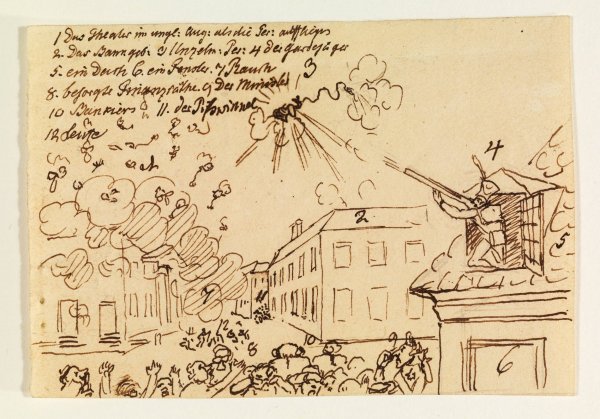 1 Das Theater im ungl: Aug: als die Per:
2. Das Bankgeb: 3 Unzelm: Per: 4 der Gardejäger
5. ein Dach 6. ein Fenster. 7 Rauch
8. besorgte Finanzräthe. 9 Der
10 Bankiers 11. der Pißwinkel
12 Leute
3
4
2
5
7
11
12
8
10
9
6